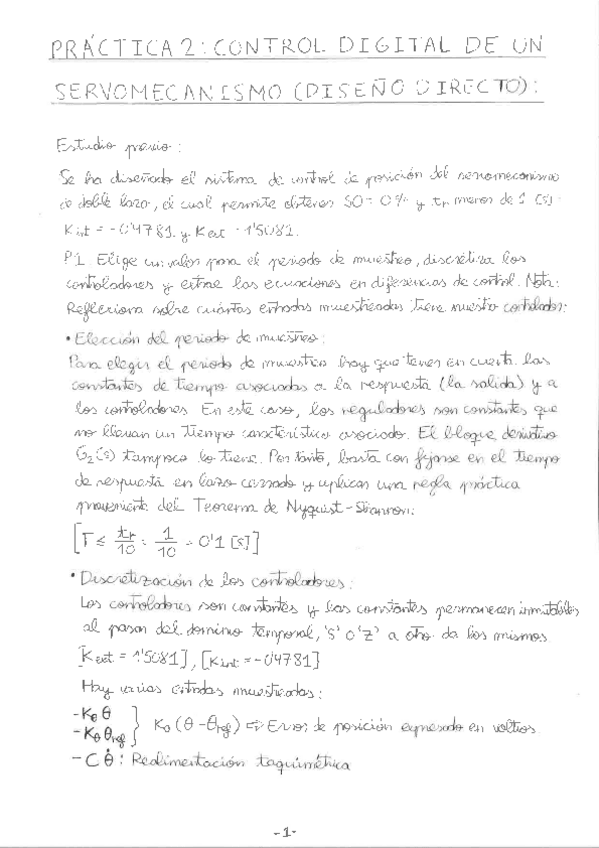 PRÁCTICA 2: CONTROL DIGITAL DE UN
SERVOMECANISMO (DISEÑO DIRECTO):
Estudio previo:
Se ha diseñado el sistema de control de posición del servomecanismo
de doble lazo, el cual permite obtener SO = 0% y tr menor de 1 [s]:
Kint = -0'4781 y Kext = 1'5081.
P1. Elige un valor para el periodo de muestreo, discretiza los
controladores y extrae las ecuaciones en diferencias de control. Nota:
Reflexiona sobre cuántas entradas muestreadas tiene nuestro controlador:
• Elección del periodo de muestreo:
Para elegir el periodo de muestreo hay que tener en cuenta las
constantes de tiempo asociadas a la respuesta (la salida) y a
los controladores. En este caso, los reguladores son constantes que
no llevan un tiempo característico asociado. El bloque derivativo
G₂(s) tampoco lo tiene. Por tanto, basta con fijarse en el tiempo
de respuesta en lazo cerrado y aplicar una regla práctica
proveniente del Teorema de Nyquist-Shannon:
[T ≤ tr/10 = 1/10 = 0'1 [s]]
• Discretización de los controladores:
Los controladores son constantes y las constantes permanecen inmutables
al pasar del dominio temporal, 's' o 'z' a otro de los mismos.
[Kext = 1'5081], [Kint = -0'4781]
Hay varias entradas muestreadas:
- Kθ θ
- Kθ θref } Kθ (θ - θref) ⇨ Error de posición expresado en voltios.
- C θ̇ : Realimentación taquimétrica
-1-